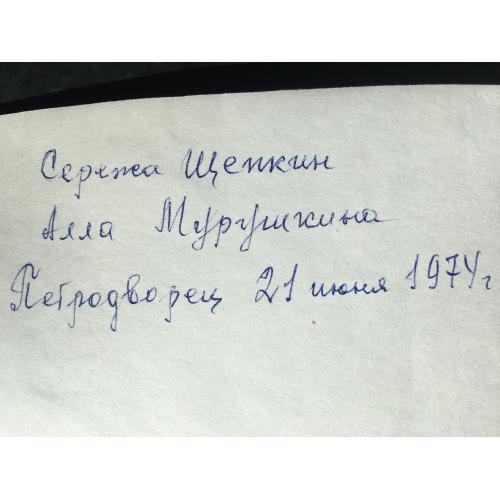 Сережа Щепкин
Алла Мурушкина
Петродворец 21 июня 1974г